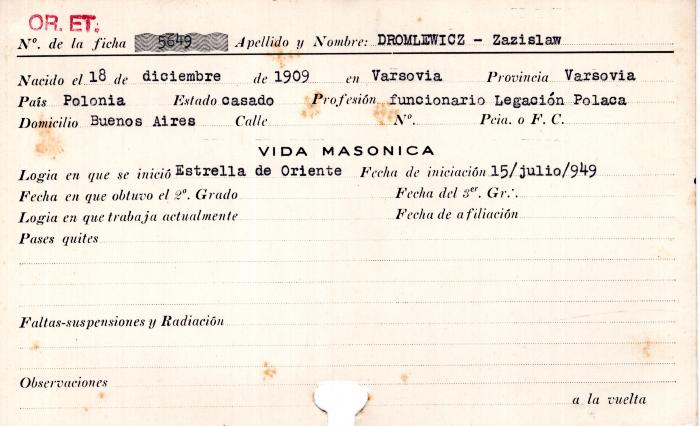 OR. ET.
Nº. de la ficha 5649 Apellido y Nombre: DROMLEWICZ - Zazislaw
Nacido el 18 de diciembre de 1909 en Varsovia Provincia Varsovia
País Polonia Estado casado Profesión funcionario Legación Polaca
Domicilio Buenos Aires Calle Nº. Pcia. o F. C.
VIDA MASONICA
Logia en que se inició Estrella de Oriente Fecha de iniciación 15/julio/949
Fecha en que obtuvo el 2º. Grado Fecha del 3er. Gr∴.
Logia en que trabaja actualmente Fecha de afiliación
Pases quites
Faltas-suspensiones y Radiación
Observaciones
a la vuelta